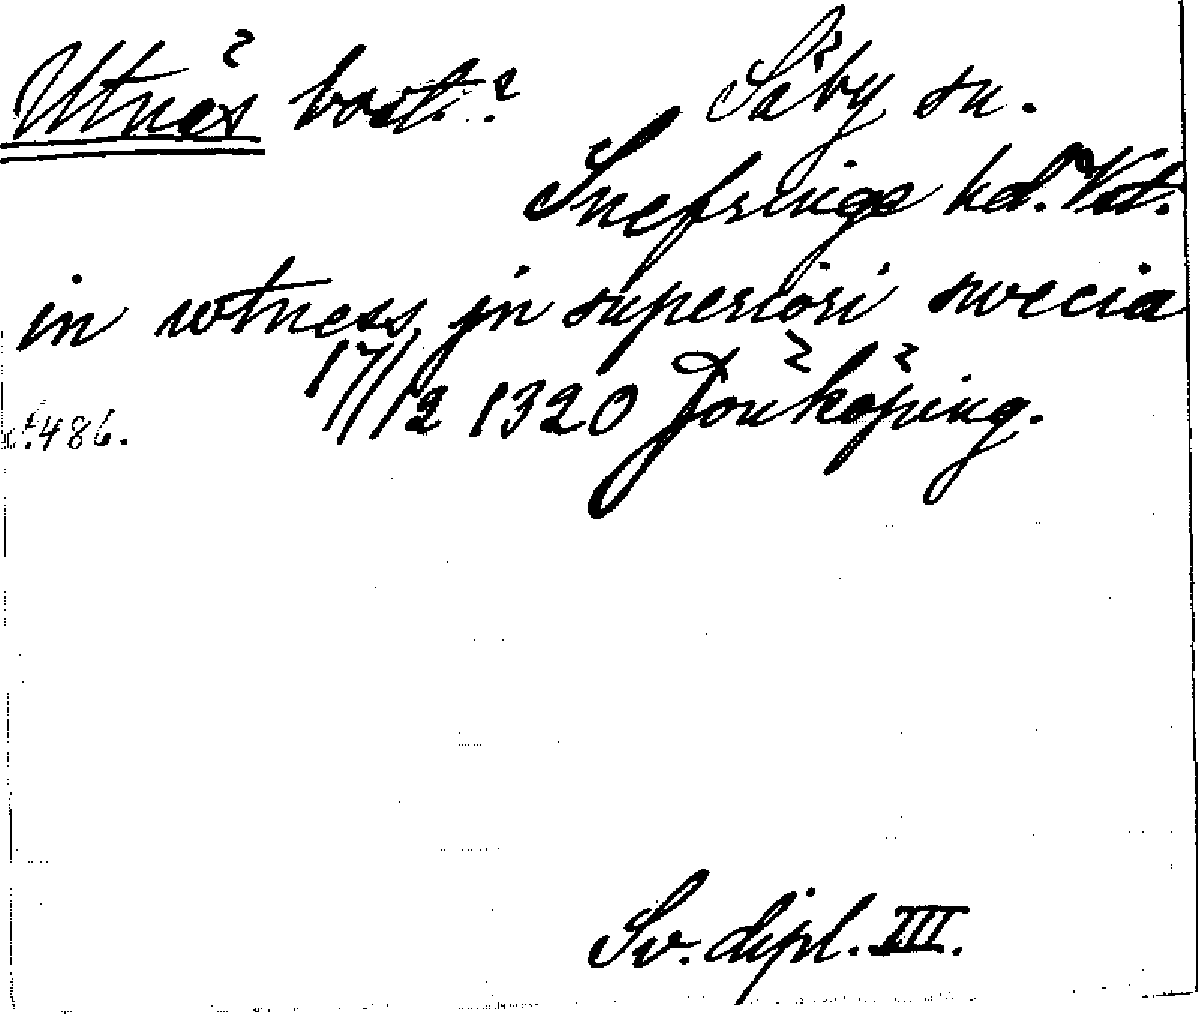 Utnäs bost.? Säby sn.
Snefringe hd. Vstm.
in vtness jn superiori swecia
17/12 1320 Jönköping.
s. 486.
Sv. dipl. III.